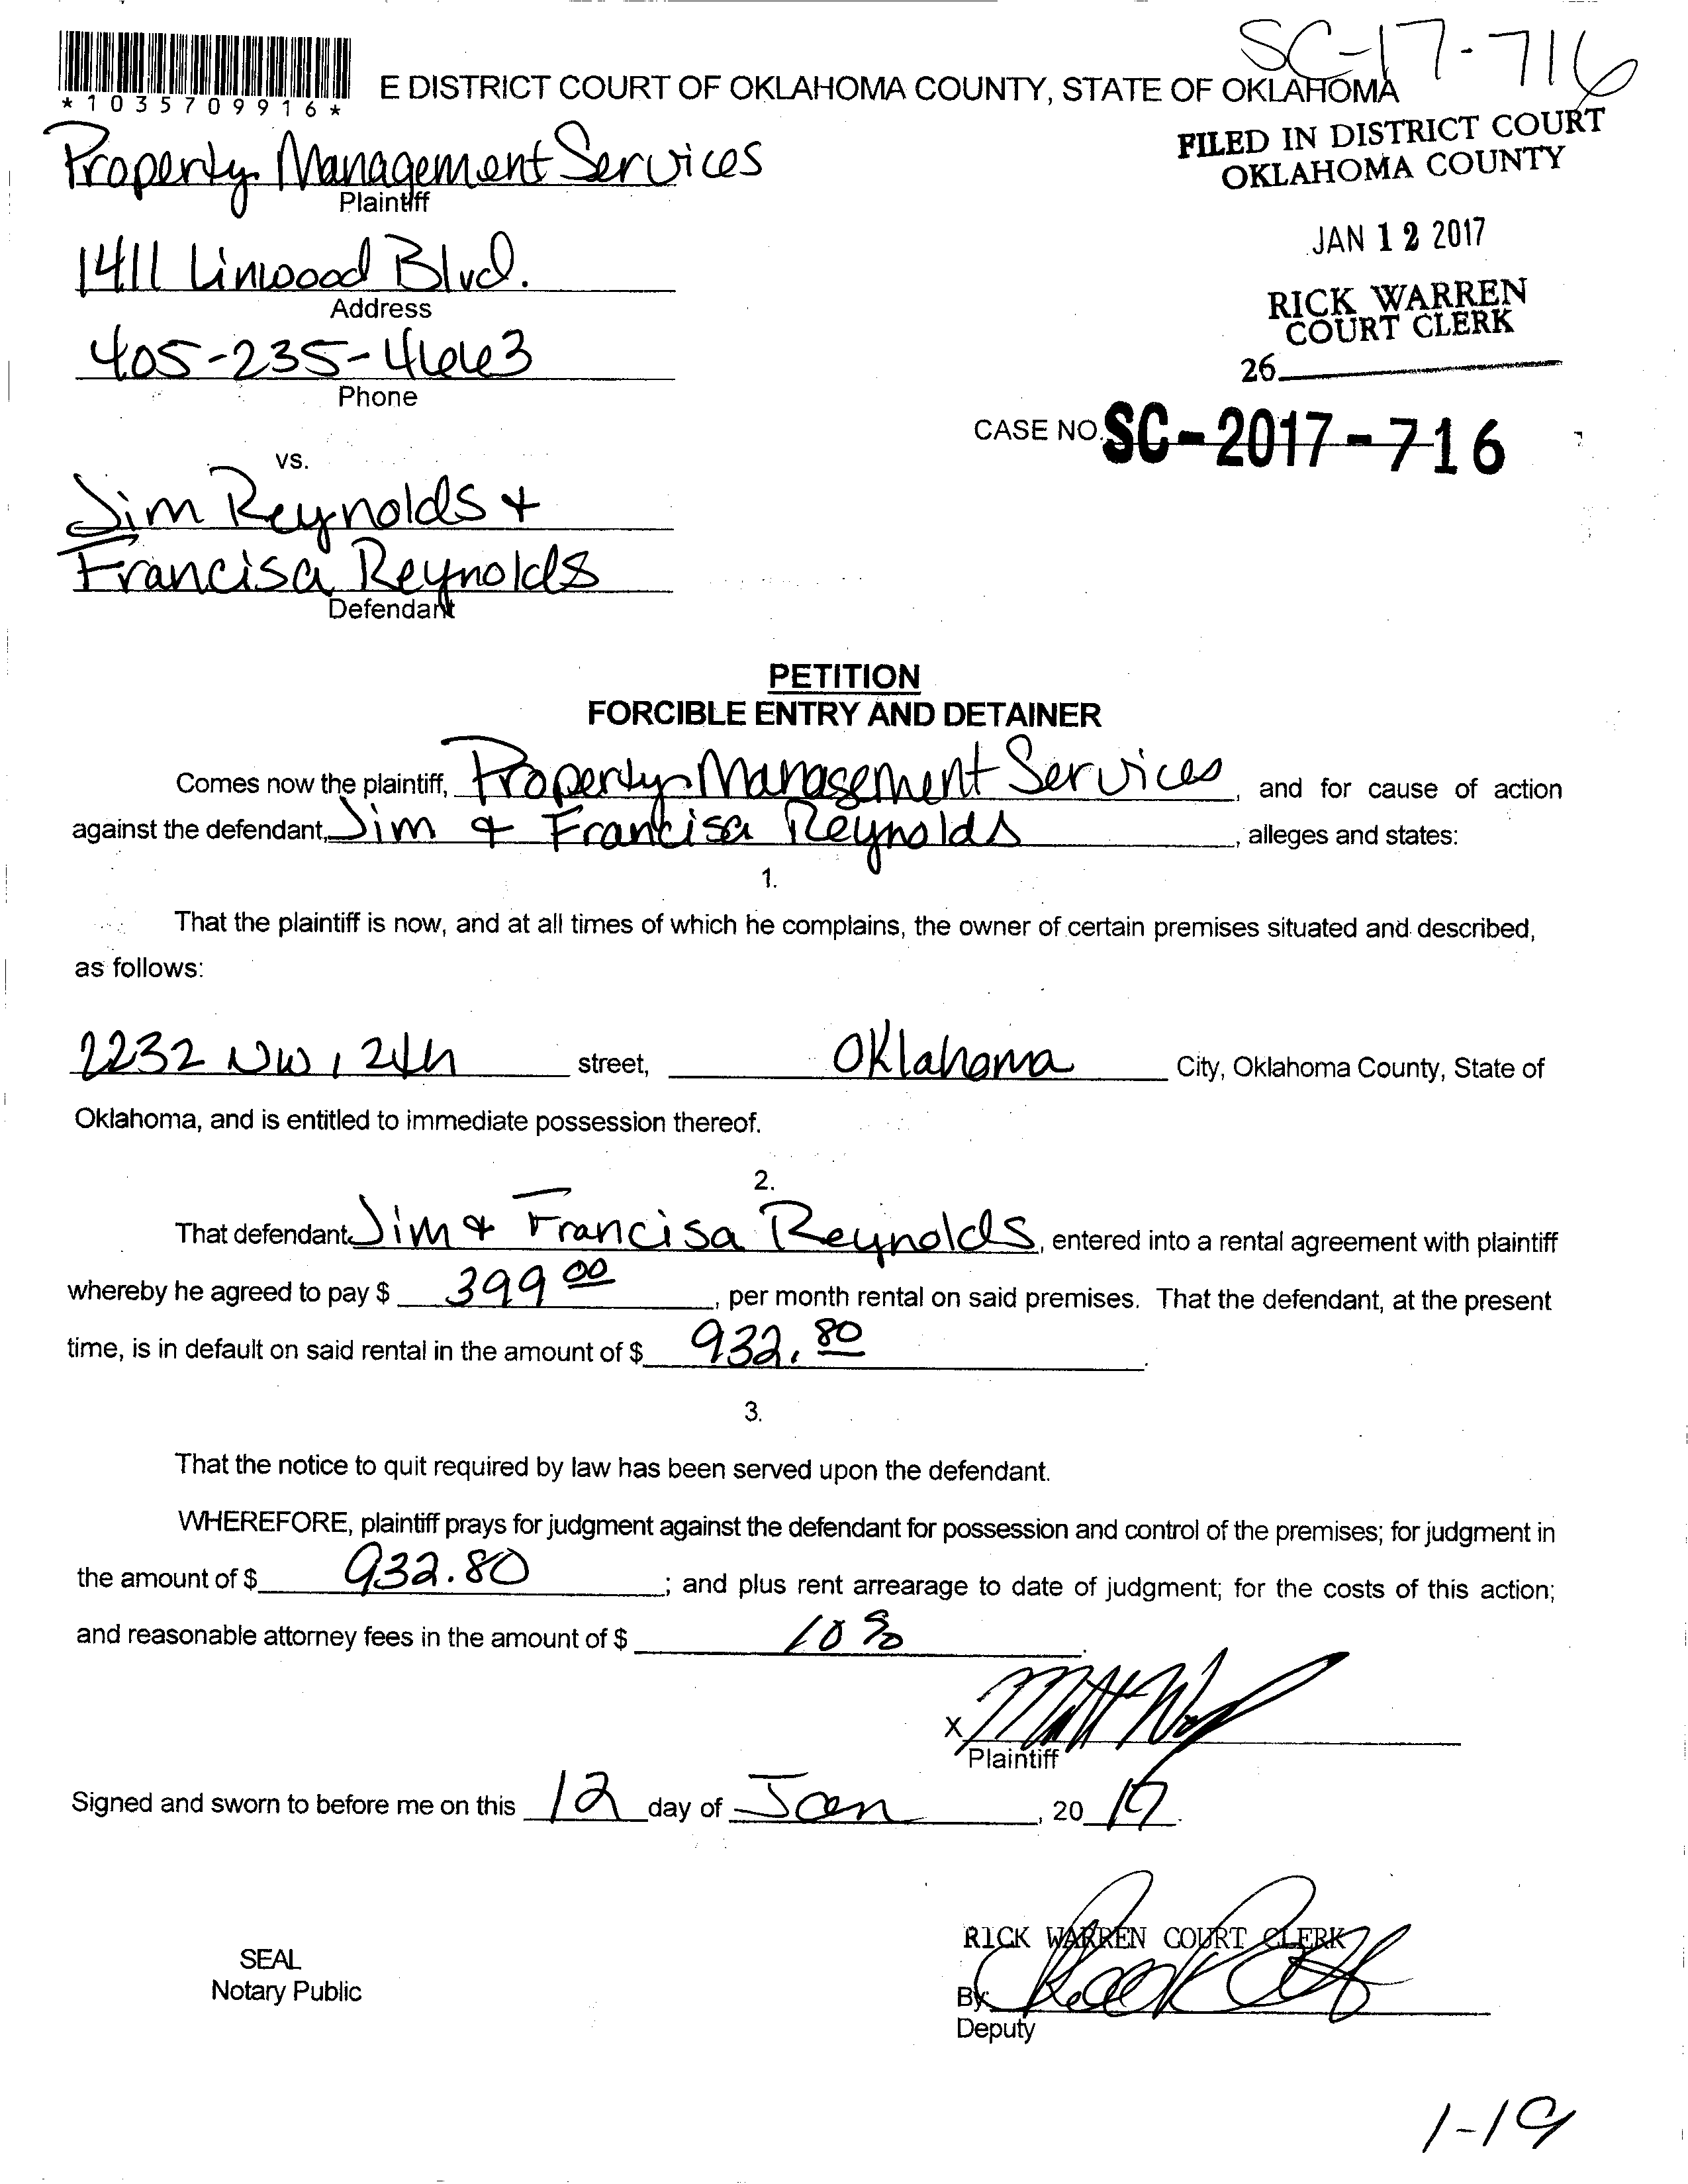 SC-17-716
*1035709916*
E DISTRICT COURT OF OKLAHOMA COUNTY, STATE OF OKLAHOMA
FILED IN DISTRICT COURT
OKLAHOMA COUNTY
JAN 12 2017
RICK WARREN
COURT CLERK
26
Property Management Services
Plaintiff
1411 Linwood Blvd.
Address
405-235-4663
Phone
CASE NO. SC-2017-716
vs.
Jim Reynolds &
Francisa Reynolds
Defendant
PETITION
FORCIBLE ENTRY AND DETAINER
Comes now the plaintiff, Property Management Services, and for cause of action
against the defendant, Jim & Francisa Reynolds, alleges and states:
1.
That the plaintiff is now, and at all times of which he complains, the owner of certain premises situated and described,
as follows:
2232 NW 12th street, Oklahoma City, Oklahoma County, State of
Oklahoma, and is entitled to immediate possession thereof.
2.
That defendant Jim & Francisa Reynolds, entered into a rental agreement with plaintiff
whereby he agreed to pay $ 399 00, per month rental on said premises. That the defendant, at the present
time, is in default on said rental in the amount of $ 932.80.
3.
That the notice to quit required by law has been served upon the defendant.
WHEREFORE, plaintiff prays for judgment against the defendant for possession and control of the premises; for judgment in
the amount of $ 932.80; and plus rent arrearage to date of judgment; for the costs of this action;
and reasonable attorney fees in the amount of $ 10%.
X
Plaintiff
Signed and sworn to before me on this 12 day of Jan, 20 17.
RICK WARREN COURT CLERK
SEAL
Notary Public
By
Deputy
1-19